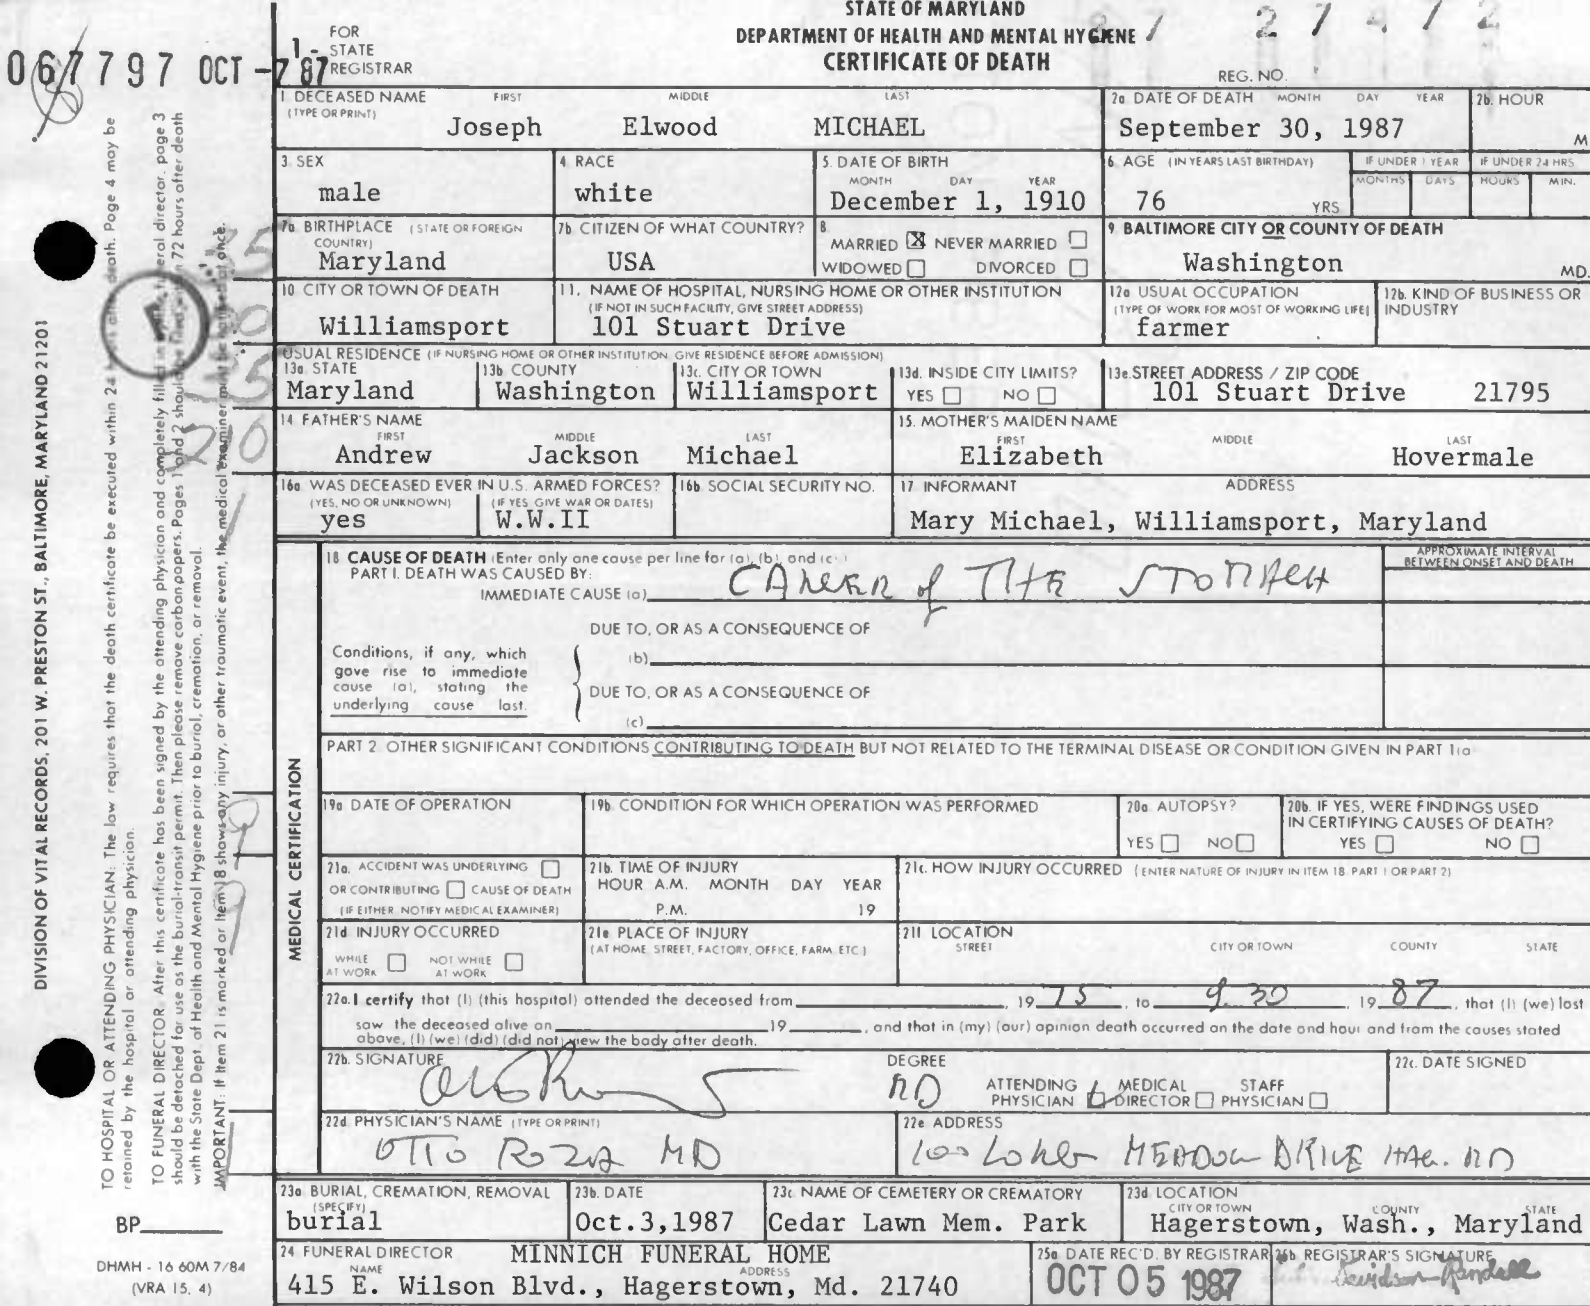 STATE OF MARYLAND
DEPARTMENT OF HEALTH AND MENTAL HYGIENE
CERTIFICATE OF DEATH
FOR
1 - STATE
REGISTRAR
067797 OCT -7 87
27472
REG. NO.
1. DECEASED NAME FIRST MIDDLE LAST
(TYPE OR PRINT)
Joseph Elwood MICHAEL
2a DATE OF DEATH MONTH DAY YEAR
September 30, 1987
2b. HOUR
M
3. SEX
male
4. RACE
white
5. DATE OF BIRTH
MONTH DAY YEAR
December 1, 1910
6. AGE (IN YEARS LAST BIRTHDAY)
76 YRS
IF UNDER 1 YEAR
MONTHS DAYS
IF UNDER 24 HRS
HOURS MIN.
7a. BIRTHPLACE (STATE OR FOREIGN
COUNTRY)
Maryland
7b. CITIZEN OF WHAT COUNTRY?
USA
8.
MARRIED X NEVER MARRIED
WIDOWED DIVORCED
9. BALTIMORE CITY OR COUNTY OF DEATH
Washington MD.
10 CITY OR TOWN OF DEATH
Williamsport
11. NAME OF HOSPITAL, NURSING HOME OR OTHER INSTITUTION
(IF NOT IN SUCH FACILITY, GIVE STREET ADDRESS)
101 Stuart Drive
12a USUAL OCCUPATION
(TYPE OF WORK FOR MOST OF WORKING LIFE)
farmer
12b. KIND OF BUSINESS OR
INDUSTRY
USUAL RESIDENCE (IF NURSING HOME OR OTHER INSTITUTION GIVE RESIDENCE BEFORE ADMISSION)
13a. STATE
Maryland
13b COUNTY
Washington
13c. CITY OR TOWN
Williamsport
13d. INSIDE CITY LIMITS?
YES NO
13e. STREET ADDRESS / ZIP CODE
101 Stuart Drive 21795
14 FATHER'S NAME
FIRST MIDDLE LAST
Andrew Jackson Michael
15. MOTHER'S MAIDEN NAME
FIRST MIDDLE LAST
Elizabeth Hovermale
16a WAS DECEASED EVER IN U.S. ARMED FORCES?
(YES, NO OR UNKNOWN) (IF YES, GIVE WAR OR DATES)
yes W.W.II
16b. SOCIAL SECURITY NO.
17 INFORMANT ADDRESS
Mary Michael, Williamsport, Maryland
MEDICAL CERTIFICATION
18 CAUSE OF DEATH (Enter only one cause per line for (a), (b), and (c).)
PART I. DEATH WAS CAUSED BY:
IMMEDIATE CAUSE (a) CANCER of THE STOMACH
APPROXIMATE INTERVAL
BETWEEN ONSET AND DEATH
DUE TO, OR AS A CONSEQUENCE OF
(b)
DUE TO, OR AS A CONSEQUENCE OF
(c)
Conditions, if any, which
gave rise to immediate
cause (a), stating the
underlying cause last.
PART 2 OTHER SIGNIFICANT CONDITIONS CONTRIBUTING TO DEATH BUT NOT RELATED TO THE TERMINAL DISEASE OR CONDITION GIVEN IN PART 1(a
19a DATE OF OPERATION
19b. CONDITION FOR WHICH OPERATION WAS PERFORMED
20a AUTOPSY?
YES NO
20b. IF YES, WERE FINDINGS USED
IN CERTIFYING CAUSES OF DEATH?
YES NO
21a. ACCIDENT WAS UNDERLYING
OR CONTRIBUTING CAUSE OF DEATH
(IF EITHER NOTIFY MEDICAL EXAMINER)
21b. TIME OF INJURY
HOUR A.M. MONTH DAY YEAR
P.M. 19
21c. HOW INJURY OCCURRED (ENTER NATURE OF INJURY IN ITEM 18 PART 1 OR PART 2)
21d INJURY OCCURRED
WHILE AT WORK NOT WHILE AT WORK
21e PLACE OF INJURY
(AT HOME, STREET, FACTORY, OFFICE, FARM, ETC.)
21f LOCATION
STREET CITY OR TOWN COUNTY STATE
22a. I certify that (I) (this hospital) attended the deceased from 19 75, to 9. 30 19 87, that (I) (we) last
saw the deceased alive on 19, and that in (my) (our) opinion death occurred on the date and hour and from the causes stated
above, (I) (we) (did) (did not) view the body after death.
22b. SIGNATURE
DEGREE
MD
ATTENDING PHYSICIAN MEDICAL DIRECTOR STAFF PHYSICIAN
22c. DATE SIGNED
22d PHYSICIAN'S NAME (TYPE OR PRINT)
OTTO ROZA MD
22e ADDRESS
100 LONG MEADOW DRIVE HAG. MD
23a BURIAL, CREMATION, REMOVAL
(SPECIFY)
burial
23b. DATE
Oct.3,1987
23c NAME OF CEMETERY OR CREMATORY
Cedar Lawn Mem. Park
23d LOCATION
CITY OR TOWN COUNTY STATE
Hagerstown, Wash., Maryland
24 FUNERAL DIRECTOR
NAME ADDRESS
MINNICH FUNERAL HOME
415 E. Wilson Blvd., Hagerstown, Md. 21740
25a DATE REC'D. BY REGISTRAR
OCT 05 1987
25b REGISTRAR'S SIGNATURE
Davidson-Randall
DIVISION OF VITAL RECORDS, 201 W. PRESTON ST., BALTIMORE, MARYLAND 21201
TO HOSPITAL OR ATTENDING PHYSICIAN: The law requires that the death certificate be executed within 24 hours after death. Page 4 may be
retained by the hospital or attending physician.
TO FUNERAL DIRECTOR: After this certificate has been signed by the attending physician and completely filled in by the funeral director, page 3
should be detached for use as the burial-transit permit. Then please remove carbon papers. Pages 1 and 2 should be filed within 72 hours after death
with the State Dept. of Health and Mental Hygiene prior to burial, cremation, or removal.
IMPORTANT: If Item 21 is marked or Item 18 shows any injury, or other traumatic event, the medical examiner must be notified at once.
BP
DHMH - 16 60M 7/84
(VRA 15, 4)